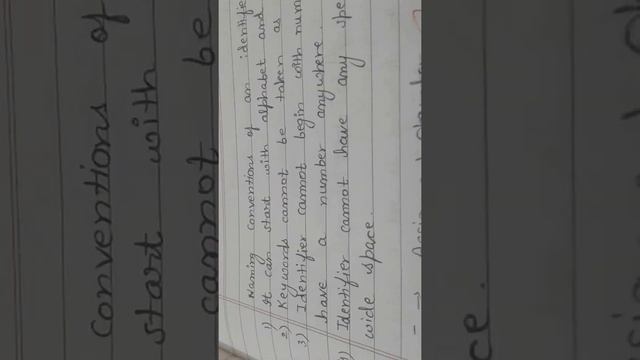 Naming conventions of an identifie
1) It can start with alphabet and
2) Keywords cannot be taken as
3) Identifier cannot begin with num
have a number anywhere
4) Identifier cannot have any spe
wide space.
conventions of
start with
cannot be
ce.